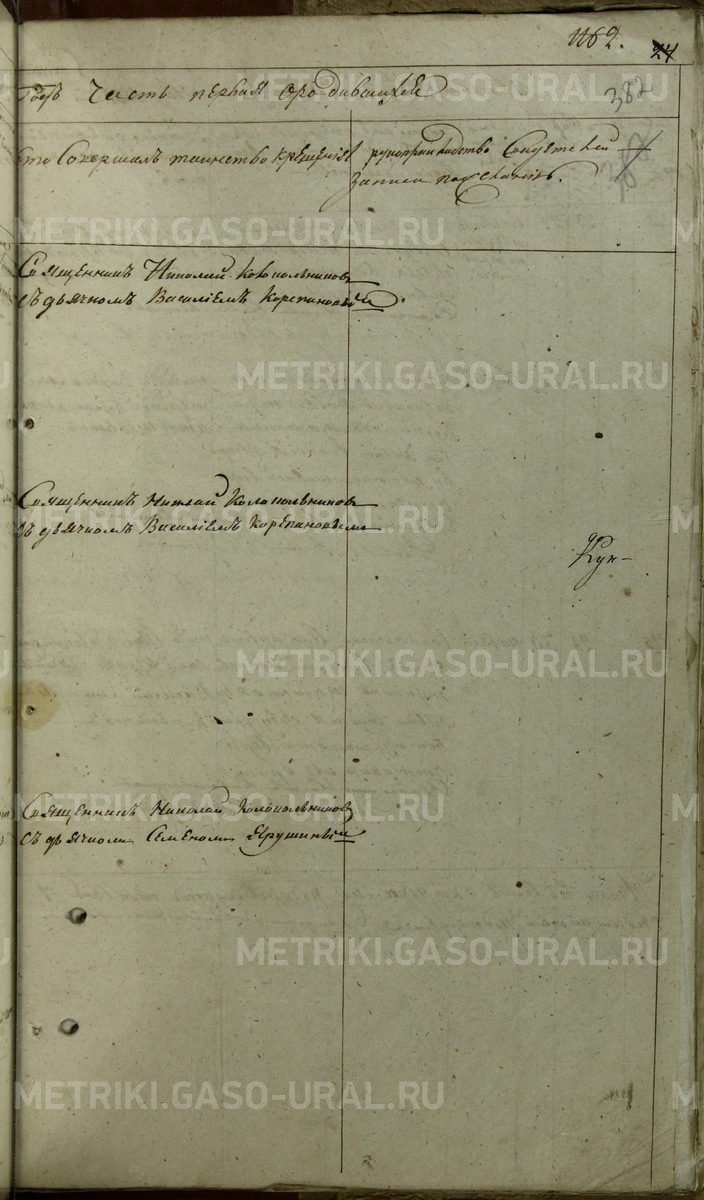 1162. 24
Годъ Часть первая о родившихся 382
Кто Совершалъ таинство крещенія рукоприкладство Свидетелей
записи по желанію.
Священникъ Николай Колокольниковъ
съ дьячкомъ Василіемъ Корепановымъ.
Священникъ Николай Колокольниковъ
съ дьячкомъ Василіемъ Корепановымъ
Кун-
Священникъ Николай Колокольниковъ
съ дьячкомъ Семеномъ Ярушинымъ
METRIKI.GASO-URAL.RU